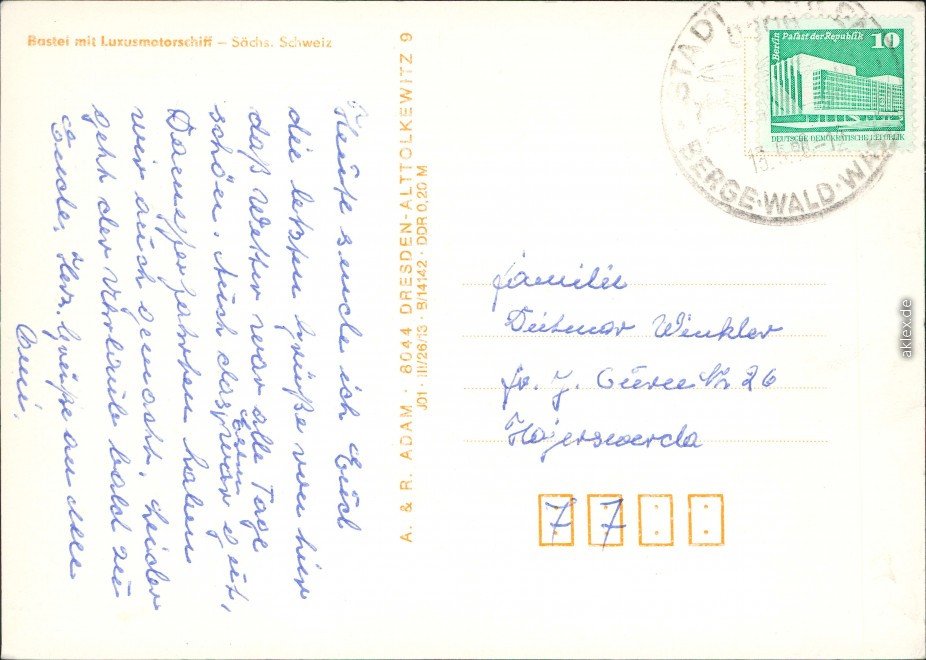 Bastei mit Luxusmotorschiff – Sächs. Schweiz
Heute sende ich Euch
die letzten Grüße von hier
daß Wetter war alle Tage
schön. Auch das war gut,
Dampferfahrten haben
wir auch gemacht. Leider
geht der Uhrlaub bald zu
Ende. Herz. Grüße an alle
Omi.
A. & R. ADAM · 8044 DRESDEN-ALTTOLKEWITZ 9
JO1 · III/26/13 · B/14142 · DDR 0,20 M
STADT WEHLEN
BERGE·WALD·
Berlin Palast der Republik 10
DEUTSCHE DEMOKRATISCHE REPUBLIK
Familie
Dietmar Winkler
Fr. J. Curie Str 26
Hojerswerda
7 7
aklex.de